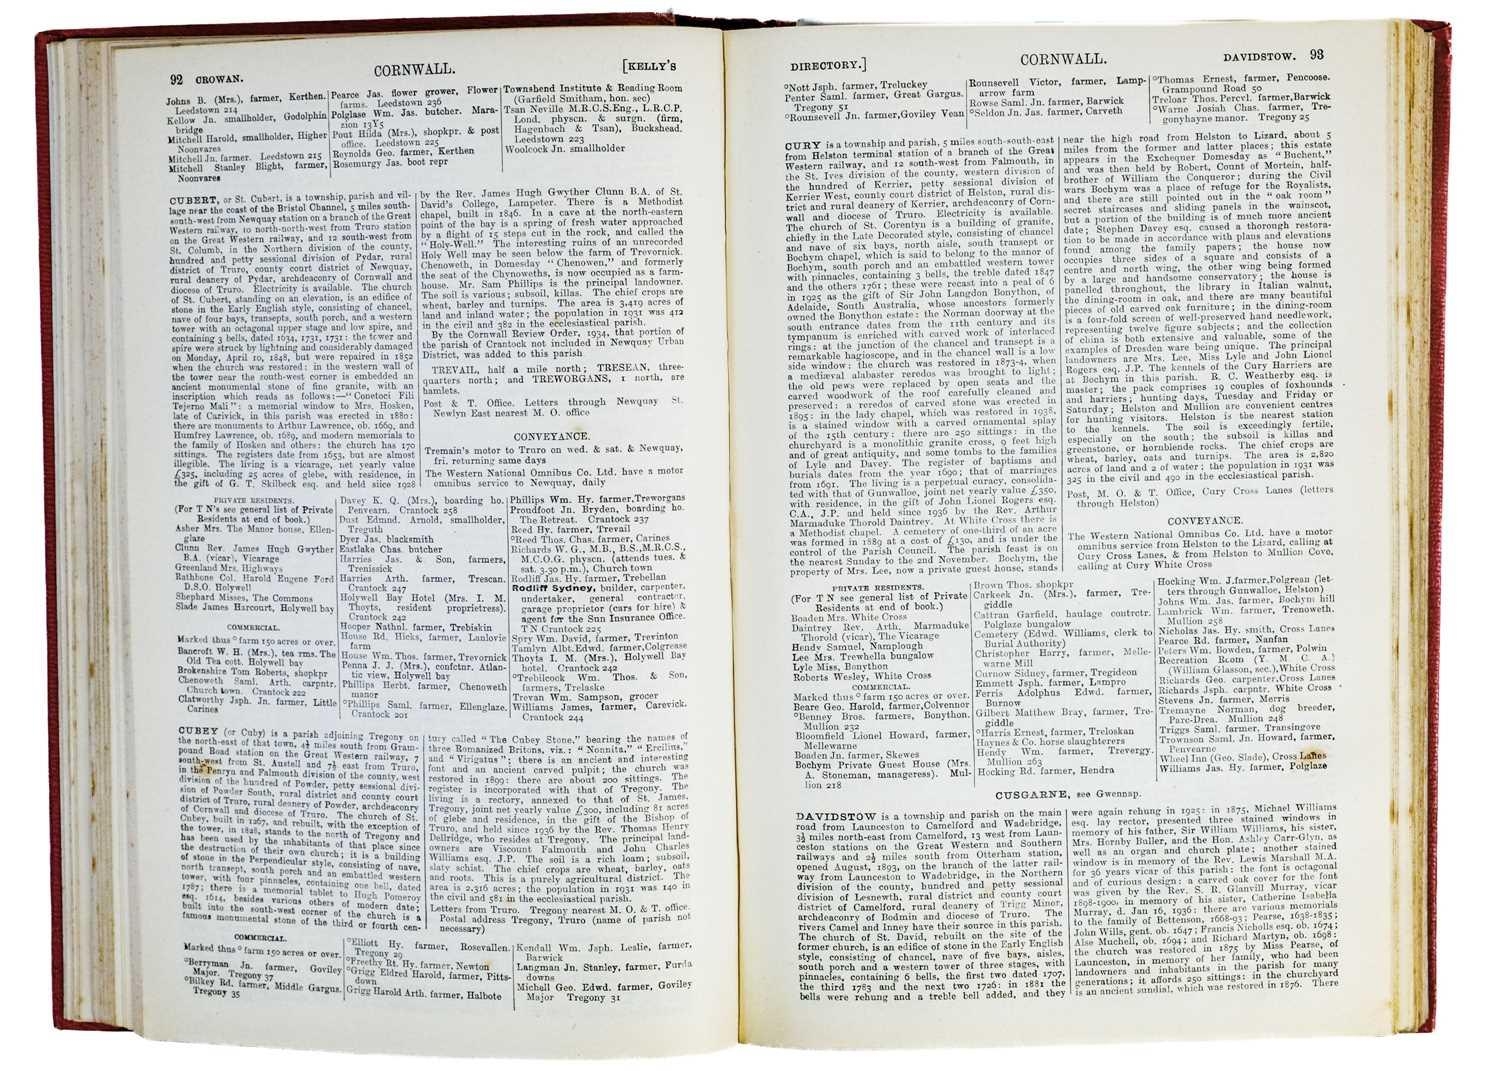 92 CROWAN.
CORNWALL.
[KELLY'S
Johns B. (Mrs.), farmer, Kerthen.
Leedstown 214
Kellow Jn. smallholder, Godolphin
bridge
Mitchell Harold, smallholder, Higher
Noonvares
Mitchell Jn. farmer. Leedstown 215
Mitchell Stanley Blight, farmer,
Noonvares
Pearce Jas. flower grower, Flower
farms. Leedstown 236
Polglase Wm. Jas. butcher. Mara-
zion 13Y5
Pout Hilda (Mrs.), shopkpr. & post
office. Leedstown 225
Reynolds Geo. farmer, Kerthen
Rosemurgy Jas. boot repr
Townshend Institute & Reading Room
(Garfield Smitham, hon. sec)
Tsan Neville M.R.C.S.Eng., L.R.C.P.
Lond. physcn. & surgn. (firm,
Hagenbach & Tsan), Buckshead.
Leedstown 223
Woolcock Jn. smallholder
CUBERT, or St. Cubert, is a township, parish and vil-
lage near the coast of the Bristol Channel, 5 miles south-
south-west from Newquay station on a branch of the Great
Western railway, 10 north-north-west from Truro station
on the Great Western railway, and 12 south-west from
St. Columb, in the Northern division of the county,
hundred and petty sessional division of Pydar, rural
district of Truro, county court district of Newquay,
rural deanery of Pydar, archdeaconry of Cornwall and
diocese of Truro. Electricity is available. The church
of St. Cubert, standing on an elevation, is an edifice of
stone in the Early English style, consisting of chancel,
nave of four bays, transepts, south porch, and a western
tower with an octagonal upper stage and low spire, and
containing 3 bells, dated 1634, 1731, 1731: the tower and
spire were struck by lightning and considerably damaged
on Monday, April 10, 1848, but were repaired in 1852
when the church was restored: in the western wall of
the tower near the south-west corner is embedded an
ancient monumental stone of fine granite, with an
inscription which reads as follows:—"Conetoci Fili
Tejerno Mali": a memorial window to Mrs. Hosken,
late of Carivick, in this parish was erected in 1880:
there are monuments to Arthur Lawrence, ob. 1669, and
Humfrey Lawrence, ob. 1689, and modern memorials to
the family of Hosken and others: the church has 170
sittings. The registers date from 1653, but are almost
illegible. The living is a vicarage, net yearly value
£325, including 25 acres of glebe, with residence, in
the gift of G. T. Skilbeck esq. and held since 1928
by the Rev. James Hugh Gwyther Clunn B.A. of St.
David's College, Lampeter. There is a Methodist
chapel, built in 1846. In a cave at the north-eastern
point of the bay is a spring of fresh water approached
by a flight of 15 steps cut in the rock, and called the
"Holy-Well." The interesting ruins of an unrecorded
Holy Well may be seen below the farm of Trevornick.
Chenoweth, in Domesday "Chenowen," and formerly
the seat of the Chynoweths, is now occupied as a farm-
house. Mr. Sam Phillips is the principal landowner.
The soil is various; subsoil, killas. The chief crops are
wheat, barley and turnips. The area is 3,419 acres of
land and inland water; the population in 1931 was 412
in the civil and 382 in the ecclesiastical parish.
By the Cornwall Review Order, 1934, that portion of
the parish of Crantock not included in Newquay Urban
District, was added to this parish
TREVAIL, half a mile north; TRESEAN, three-
quarters north; and TREWORGANS, 1 north, are
hamlets.
Post & T. Office. Letters through Newquay St.
Newlyn East nearest M. O. office
CONVEYANCE.
Tremain's motor to Truro on wed. & sat. & Newquay,
fri. returning same days
The Western National Omnibus Co. Ltd. have a motor
omnibus service to Newquay, daily
PRIVATE RESIDENTS.
(For T N's see general list of Private
Residents at end of book.)
Asher Mrs. The Manor house, Ellen-
glaze
Clunn Rev. James Hugh Gwyther
B.A. (vicar), Vicarage
Greenland Mrs. Highways
Rathbone Col. Harold Eugene Ford
D.S.O. Holywell
Shephard Misses, The Commons
Slade James Harcourt, Holywell bay
COMMERCIAL.
Marked thus ° farm 150 acres or over.
Bancroft W. H. (Mrs.), tea rms. The
Old Tea cott. Holywell bay
Brokenshire Tom Roberts, shopkpr
Chenoweth Saml. Arth. carpntr.
Church town. Crantock 222
Clatworthy Jsph. Jn. farmer, Little
Carines
Davey K. Q. (Mrs.), boarding ho.
Penvearn. Crantock 258
Dust Edmnd. Arnold, smallholder,
Treguth
Dyer Jas. blacksmith
Eastlake Chas. butcher
Harries Jas. & Son, farmers,
Trenissick
Harries Arth. farmer, Trescan.
Crantock 247
Holywell Bay Hotel (Mrs. I. M.
Thoyts, resident proprietress).
Crantock 242
Hooper Nathnl. farmer, Trebiskin
House Rd. Hicks, farmer, Lanlovie
farm
House Wm. Thos. farmer, Trevornick
Penna J. J. (Mrs.), confctnr. Atlan-
tic view, Holywell bay
Phillips Herbt. farmer, Chenoweth
manor
°Phillips Saml. farmer, Ellenglaze.
Crantock 201
Phillips Wm. Hy. farmer, Treworgans
Proudfoot Jn. Bryden, boarding ho.
The Retreat. Crantock 237
Reed Hy. farmer, Trevail
°Reed Thos. Chas. farmer, Carines
Richards W. G., M.B., B.S., M.R.C.S.,
M.C.O.G. physcn. (attends tues. &
sat. 3.30 p.m.), Church town
Rodliff Jas. Hy. farmer, Trebellan
Rodliff Sydney, builder, carpenter,
undertaker, general contractor,
garage proprietor (cars for hire) &
agent for the Sun Insurance Office.
T N Crantock 225
Spry Wm. David, farmer, Trevinton
Tamlyn Albt. Edwd. farmer, Colgrease
Thoyts I. M. (Mrs.), Holywell Bay
hotel. Crantock 242
°Trebilcook Wm. Thos. & Son,
farmers, Trelaske
Trevan Wm. Sampson, grocer
Williams James, farmer, Carevick.
Crantock 244
CUBEY (or Cuby) is a parish adjoining Tregony on
the north-east of that town, 4½ miles south from Gram-
pound Road station on the Great Western railway, 7
south-west from St. Austell and 7½ east from Truro,
in the Penryn and Falmouth division of the county, west
division of the hundred of Powder, petty sessional divi-
sion of Powder South, rural district and county court
district of Truro, rural deanery of Powder, archdeaconry
of Cornwall and diocese of Truro. The church of St.
Cubey, built in 1267, and rebuilt, with the exception of
the tower, in 1828, stands to the north of Tregony and
has been used by the inhabitants of that place since
the destruction of their own church; it is a building
of stone in the Perpendicular style, consisting of nave,
north transept, south porch and an embattled western
tower, with four pinnacles, containing one bell, dated
1787; there is a memorial tablet to Hugh Pomeroy
esq. 1614, besides various others of modern date;
built into the south-west corner of the church is a
famous monumental stone of the third or fourth cen-
tury called "The Cubey Stone," bearing the names of
three Romanized Britons, viz.: "Nonnita," "Ercilius,"
and "Virigatus"; there is an ancient and interesting
font and an ancient carved pulpit; the church was
restored in 1899: there are about 200 sittings. The
register is incorporated with that of Tregony. The
living is a rectory, annexed to that of St. James,
Tregony, joint net yearly value £300, including 81 acres
of glebe and residence, in the gift of the Bishop of
Truro, and held since 1936 by the Rev. Thomas Henry
Dellridge, who resides at Tregony. The principal land-
owners are Viscount Falmouth and John Charles
Williams esq. J.P. The soil is a rich loam; subsoil,
slaty schist. The chief crops are wheat, barley, oats
and roots. This is a purely agricultural district. The
area is 2,316 acres; the population in 1931 was 140 in
the civil and 581 in the ecclesiastical parish.
Letters from Truro. Tregony nearest M. O. & T. office.
Postal address Tregony, Truro (name of parish not
necessary)
COMMERCIAL.
Marked thus ° farm 150 acres or over.
°Berryman Jn. farmer, Goviley
Major. Tregony 37
°Bilkey Rd. farmer, Middle Gargus.
Tregony 35
°Elliott Hy. farmer, Rosevallen.
Tregony 29
°Freethy Rt. Hy. farmer, Newton
°Grigg Eldred Harold, farmer, Pitts-
down
Grigg Harold Arth. farmer, Halbote
Kendall Wm. Jsph. Leslie, farmer,
Barwick
Langman Jn. Stanley, farmer, Furda
downs
Michell Geo. Edwd. farmer, Goviley
Major Tregony 31
DIRECTORY.]
CORNWALL.
DAVIDSTOW. 93
°Nott Jsph. farmer, Treluckey
Penter Saml. farmer, Great Gargus.
Tregony 51
°Rounsevell Jn. farmer, Goviley Vean
Rounsevell Victor, farmer, Lamp-
arrow farm
Rowse Saml. Jn. farmer, Barwick
°Seldon Jn. Jas. farmer, Carveth
°Thomas Ernest, farmer, Pencoose.
Grampound Road 50
Treloar Thos. Percvl. farmer, Barwick
°Warne Josiah Chas. farmer, Tre-
gonyhayne manor. Tregony 25
CURY is a township and parish, 5 miles south-south-east
from Helston terminal station of a branch of the Great
Western railway, and 12 south-west from Falmouth, in
the St. Ives division of the county, western division of
the hundred of Kerrier, petty sessional division of
Kerrier West, county court district of Helston, rural dis-
trict and rural deanery of Kerrier, archdeaconry of Corn-
wall and diocese of Truro. Electricity is available.
The church of St. Corentyn is a building of granite,
chiefly in the Late Decorated style, consisting of chancel
and nave of six bays, north aisle, south transept or
Bochym chapel, which is said to belong to the manor of
Bochym, south porch and an embattled western tower
with pinnacles, containing 3 bells, the treble dated 1847
and the others 1761; these were recast into a peal of 6
in 1925 as the gift of Sir John Langdon Bonython, of
Adelaide, South Australia, whose ancestors formerly
owned the Bonython estate: the Norman doorway at the
south entrance dates from the 11th century and its
tympanum is enriched with carved work of interlaced
rings: at the junction of the chancel and transept is a
remarkable hagioscope, and in the chancel wall is a low
side window: the church was restored in 1873-4, when
a mediæval alabaster reredos was brought to light;
the old pews were replaced by open seats and the
carved woodwork of the roof carefully cleaned and
preserved: a reredos of carved stone was erected in
1895: in the lady chapel, which was restored in 1938,
is a stained window with a carved ornamental splay
of the 15th century: there are 250 sittings: in the
churchyard is a monolithic granite cross, 9 feet high
and of great antiquity, and some tombs to the families
of Lyle and Davey. The register of baptisms and
burials dates from the year 1690; that of marriages
from 1691. The living is a perpetual curacy, consolida-
ted with that of Gunwalloe, joint net yearly value £350,
with residence, in the gift of John Lionel Rogers esq.
C.A., J.P. and held since 1936 by the Rev. Arthur
Marmaduke Thorold Daintrey. At White Cross there is
a Methodist chapel. A cemetery of one-third of an acre
was formed in 1889 at a cost of £130, and is under the
control of the Parish Council. The parish feast is on
the nearest Sunday to the 2nd November. Bochym, the
property of Mrs. Lee, now a private guest house, stands
near the high road from Helston to Lizard, about 5
miles from the former and latter places; this estate
appears in the Exchequer Domesday as "Buchent,"
and was then held by Robert, Count of Mortein, half-
brother of William the Conqueror; during the Civil
wars Bochym was a place of refuge for the Royalists,
and there are still pointed out in the "oak room"
secret staircases and sliding panels in the wainscot,
but a portion of the building is of much more ancient
date; Stephen Davey esq. caused a thorough restora-
tion to be made in accordance with plans and elevations
found among the family papers; the house now
occupies three sides of a square and consists of a
centre and north wing, the other wing being formed
by a large and handsome conservatory; the house is
panelled throughout, the library in Italian walnut,
the dining-room in oak, and there are many beautiful
pieces of old carved oak furniture; in the dining-room
is a four-fold screen of well-preserved hand needlework,
representing twelve figure subjects; and the collection
of china is both extensive and valuable, some of the
examples of Dresden ware being unique. The principal
landowners are Mrs. Lee, Miss Lyle and John Lionel
Rogers esq. J.P. The kennels of the Cury Harriers are
at Bochym in this parish. R. C. Weatherby esq. is
master; the pack comprises 19 couples of foxhounds
and harriers; hunting days, Tuesday and Friday or
Saturday; Helston and Mullion are convenient centres
for hunting visitors. Helston is the nearest station
to the kennels. The soil is exceedingly fertile,
especially on the south; the subsoil is killas and
greenstone, or hornblende rocks. The chief crops are
wheat, barley, oats and turnips. The area is 2,820
acres of land and 2 of water; the population in 1931 was
325 in the civil and 490 in the ecclesiastical parish.
Post, M. O. & T. Office, Cury Cross Lanes (letters
through Helston)
CONVEYANCE.
The Western National Omnibus Co. Ltd. have a motor
omnibus service from Helston to the Lizard, calling at
Cury Cross Lanes, & from Helston to Mullion Cove,
calling at Cury White Cross
PRIVATE RESIDENTS.
(For T N see general list of Private
Residents at end of book.)
Boaden Mrs. White Cross
Daintrey Rev. Arth. Marmaduke
Thorold (vicar), The Vicarage
Hendy Samuel, Namplough
Lee Mrs. Trewhella bungalow
Lyle Miss, Bonython
Roberts Wesley, White Cross
COMMERCIAL.
Marked thus ° farm 150 acres or over.
Beare Geo. Harold, farmer, Colvennor
°Benney Bros. farmers, Bonython.
Mullion 232
Bloomfield Lionel Howard, farmer,
Mellewarne
Boaden Jn. farmer, Skewes
Bochym Private Guest House (Mrs.
A. Stoneman, manageress). Mul-
lion 218
Brown Thos. shopkpr
Carkeek Jn. (Mrs.), farmer, Tre-
giddle
Cattran Garfield, haulage contrctr.
Polglaze bungalow
Cemetery (Edwd. Williams, clerk to
Burial Authority)
Christopher Harry, farmer, Melle-
warne Mill
Curnow Sidney, farmer, Tregideon
Emmett Jsph. farmer, Lampro
Ferris Adolphus Edwd. farmer,
Burnow
Gilbert Matthew Bray, farmer, Tre-
giddle
°Harris Ernest, farmer, Treloskan
Haynes & Co. horse slaughterers
Hendy Wm. farmer, Trevergy.
Mullion 263
Hocking Rd. farmer, Hendra
Hocking Wm. J. farmer, Polgrean (let-
ters through Gunwalloe, Helston)
Johns Wm. Jas. farmer, Bochym hill
Lambrick Wm. farmer, Trenoweth.
Mullion 258
Nicholas Jas. Hy. smith, Cross Lanes
Pearce Rd. farmer, Nanfan
Peters Wm. Bowden, farmer, Polwin
Recreation Room (Y. M. C. A.)
(William Glasson, sec.), White Cross
Richards Geo. carpenter, Cross Lanes
Richards Jsph. carpntr. White Cross
Stevens Jn. farmer, Merris
Tremayne Norman, dog breeder,
Parc-Drea. Mullion 248
Triggs Saml. farmer, Transingove
Trownson Saml. Jn. Howard, farmer,
Penvearne
Wheel Inn (Geo. Slade), Cross Lanes
Williams Jas. Hy. farmer, Polglaze
CUSGARNE, see Gwennap.
DAVIDSTOW is a township and parish on the main
road from Launceston to Camelford and Wadebridge,
3½ miles north-east from Camelford, 13 west from Laun-
ceston stations on the Great Western and Southern
railways and 2½ miles south from Otterham station,
opened August, 1893, on the branch of the latter rail-
way from Launceston to Wadebridge, in the Northern
division of the county, hundred and petty sessional
division of Lesnewth, rural district and county court
district of Camelford, rural deanery of Trigg Minor,
archdeaconry of Bodmin and diocese of Truro. The
rivers Camel and Inney have their source in this parish.
The church of St. David, rebuilt on the site of the
former church, is an edifice of stone in the Early English
style, consisting of chancel, nave of five bays, aisles,
south porch and a western tower of three stages, with
pinnacles, containing 6 bells, the first two dated 1707,
the third 1783 and the next two 1726: in 1881 the
bells were rehung and a treble bell added, and they
were again rehung in 1925: in 1875, Michael Williams
esq. lay rector, presented three stained windows in
memory of his father, Sir William Williams, his sister,
Mrs. Hornby Buller, and the Hon. Ashley Carr-Glyn, as
well as an organ and church plate; another stained
window is in memory of the Rev. Lewis Marshall M.A.
for 36 years vicar of this parish: the font is octagonal
and of curious design: a carved oak cover for the font
was given by the Rev. S. R. Glanvill Murray, vicar
1898-1900, in memory of his sister, Catherine Isabel
Murray, d. Jan 16, 1936: there are various memorials
to the family of Bettenson, 1668-93; Pearse, 1638-1835;
John Wills, gent. ob. 1647; Francis Nicholls esq. ob. 1674;
Alse Muchell, ob. 1694; and Richard Martyn, ob. 1698:
the church was restored in 1875 by Miss Pearse, of
Launceston, in memory of her family, who had been
landowners and inhabitants in the parish for many
generations; it affords 250 sittings: in the churchyard
is an ancient sundial, which was restored in 1876. There